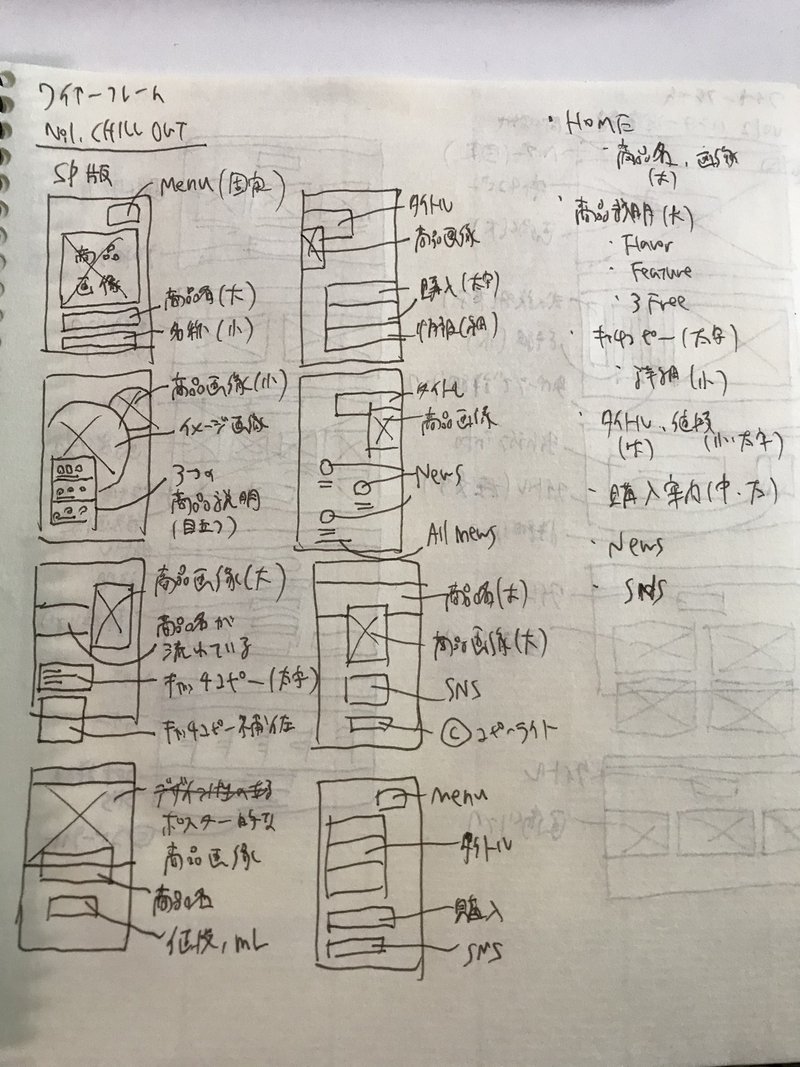 ワイヤーフレーム
No1. CHILL OUT
SP版
Menu(固定)
商品
画像
商品名(大)
名称(小)
商品画像(小)
イメージ画像
3つの
商品説明
(目立つ)
商品画像(大)
商品名が
流れている
キャッチコピー(太字)
キャッチコピー
デザイン性のある
ポスター的な
商品画像
商品名
値段, mL
タイトル
商品画像
購入(太字)
情報(細)
タイトル
商品画像
News
All news
商品名(大)
商品画像(大)
SNS
©コピーライト
menu
タイトル
購入
SNS
・HOME
・商品名、画像
(大)
・商品説明(大)
・Flavor
・Feature
・3 Free
・キャッチコピー(太字)
・詳細(小)
・タイトル、値段
(大) (小、太字)
・購入案内(中・太)
・News
・SNS